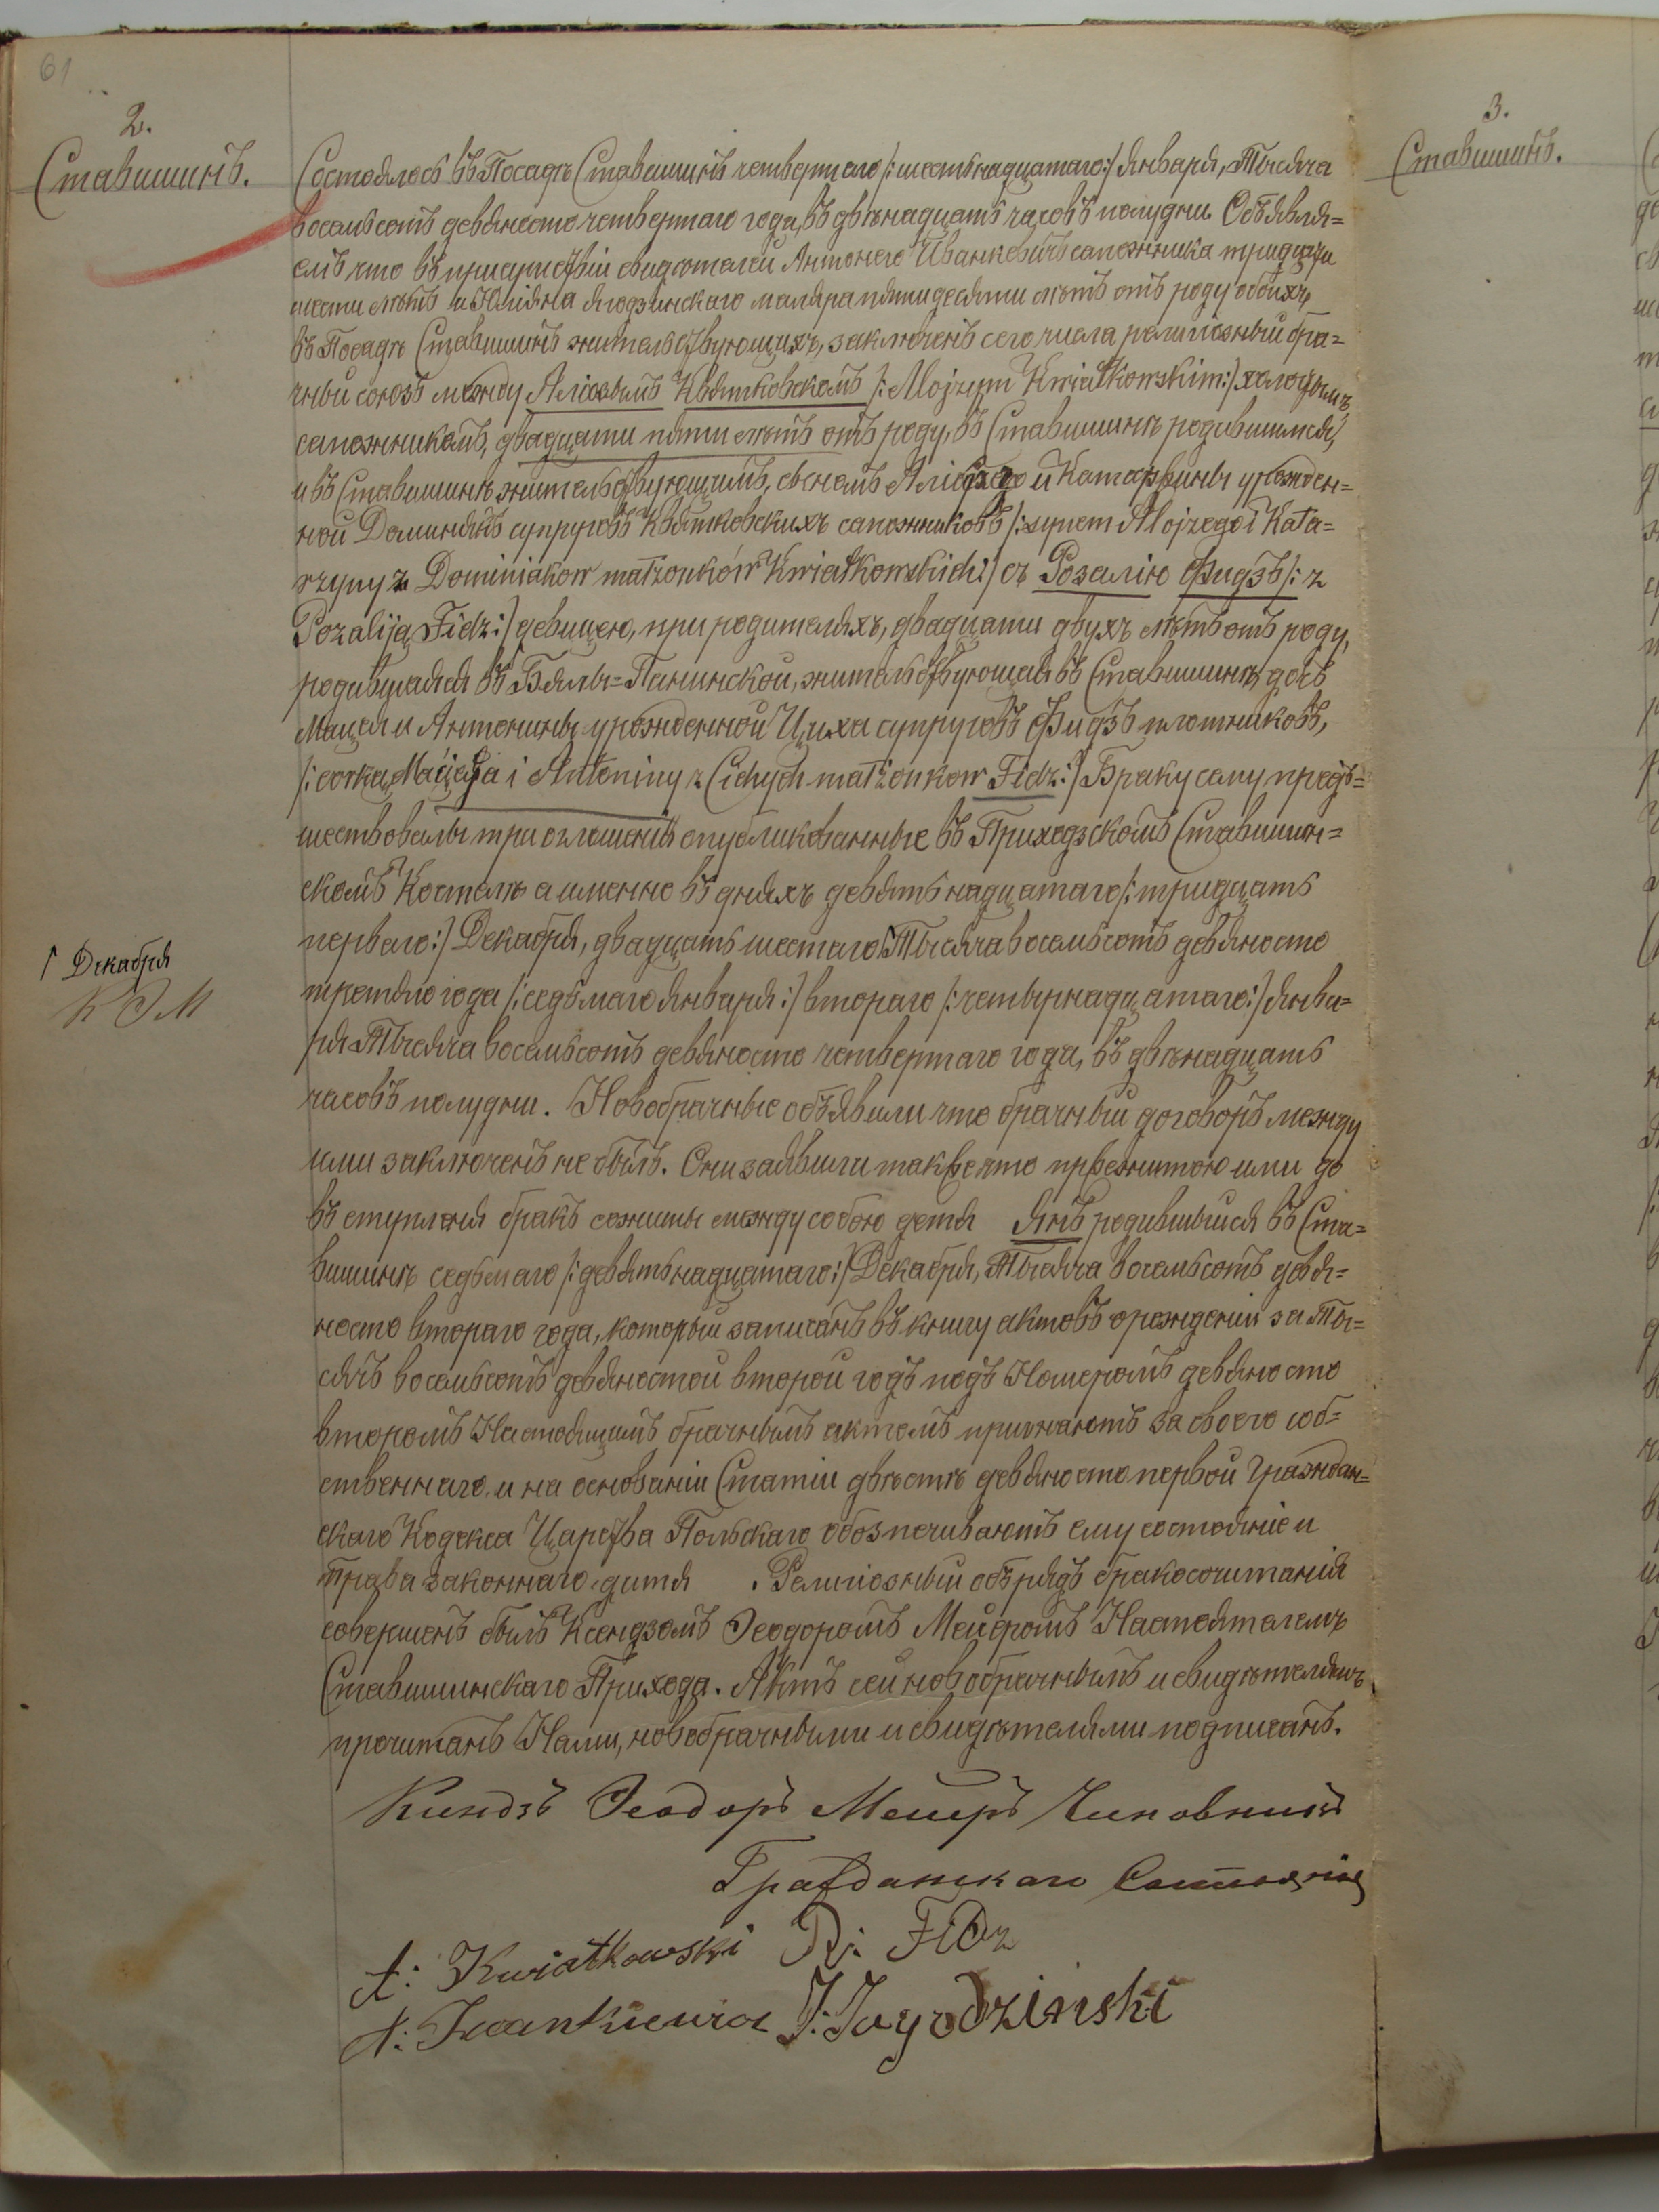 61
2.
Ставишинъ.
Состоялось въ Посадѣ Ставишинѣ четвертаго /:шестьнадцатаго:/ Января, Тысяча
восемьсотъ девяносто четвертаго года, въ двѣнадцать часовъ полудни. Объявля=
емъ что въ присутствіи свидѣтелей Антонего Иванкевичъ сапожника тридцати
шести лѣтъ и Юліяна Ягодзинскаго маляра пятидесяти лѣтъ отъ роду обоихъ
въ Посадѣ Ставишинѣ жительствующихъ, заключенъ сего числа религіозный бра=
чный союзъ между Алiозымъ Квятковскомъ /:Alojzym Kwiatkowskim:/ холостымъ,
сапожникомъ, двадцати пяти лѣтъ отъ роду, въ Ставишинѣ родившимся,
и въ Ставишинѣ жительствующимъ, сыномъ Алiозего и Катаржины урожден=
ной Доминякъ супруговъ Квятковскихъ сапожниковъ /:synem Alojzego i Kata=
rzyny z Dominiakow małżonków Kwiatkowskich:/ съ Розалію Фидзъ /:z
Rozaliją Fidz:/ девицею, при родителяхъ, двадцати двухъ лѣтъ отъ роду,
родившаяся въ Бялы=Панинской, жительствующая въ Ставишинѣ, дочь
Мацея и Антонины урожденной Циха супруговъ Фидзъ плотниковъ,
/:corką Macieja i Antoniny z Cichych małżonkow Fidz:/ Браку сему предъ=
шествовалы три оглошенiѣ опубликованные въ Приходзскомъ Ставишин=
скомъ Костелѣ а именно въ дняхъ девятьнадцатаго /:тридцать
перваго:/ Декабря, двадцать шестаго ⌈ Тысяча восемьсотъ девяносто
третяго года /:седьмаго Января:/ втораго /:четырнадцатаго:/ Янва=
ря Тысяча восемьсотъ девяносто четвертаго года, въ двѣнадцать
часовъ полудни. Новобрачные объявили что брачный договоръ между
ими заключенъ не былъ. Они заявили также что прежитою ими до
въ ступленя бракъ сожиты между собою детя Янъ родившыйся въ Ста=
вишинѣ седьмаго /:девятьнадцатаго:/ Декабря, Тысяча восемьсотъ девя=
носто втораго года, который записанъ въ книгу актовъ орождении за Ты=
сячъ восемьсотъ девяностой второй годъ подъ Номеромъ девяносто
второмъ Настоящимъ брачнымъ актомъ признаютъ за своего соб=
ственнаго, и на основаніи Статіи двѣстѣ девяносто первой Граждан=
скаго Кодекса Царства Польскаго обозпечиваютъ ему состояніе и
права законнаго дитя . Религіозный обърядъ бракосочитанія
совершенъ былъ Ксендзомъ Ѳеодоромъ Мейеромъ Настоятелемъ
Ставишинскаго Прихода. Актъ сей новобрачнымъ и свидѣтелямъ
прочитанъ Нами, новобрачными и свидѣтелями подписанъ.
⌈ Декабря
К Ѳ М
Ксиндзъ Ѳеодоръ Меиеръ Чиновникъ
Гражданскаго Состоянія
A: Kwiatkowski R: Fidz
A: Iwankiewicz J: Jagodziński
3.
Ставишинъ.